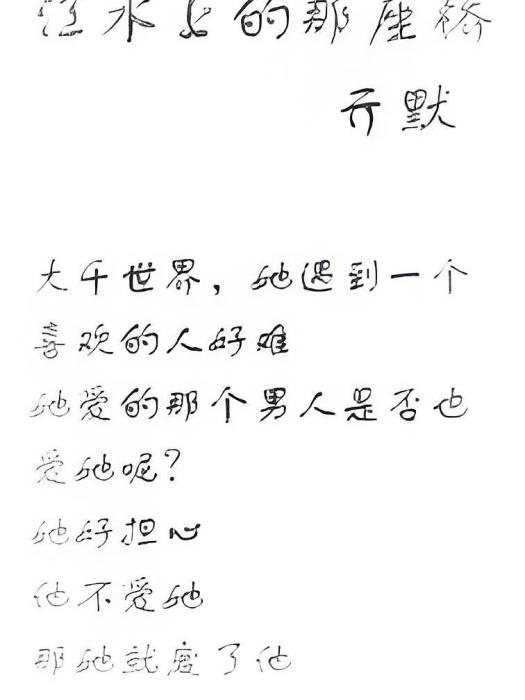 江水上的那座桥
亓默
大千世界，她遇到一个
喜欢的人好难
她爱的那个男人是否也
爱她呢？
她好担心
他不爱她
那她就废了他